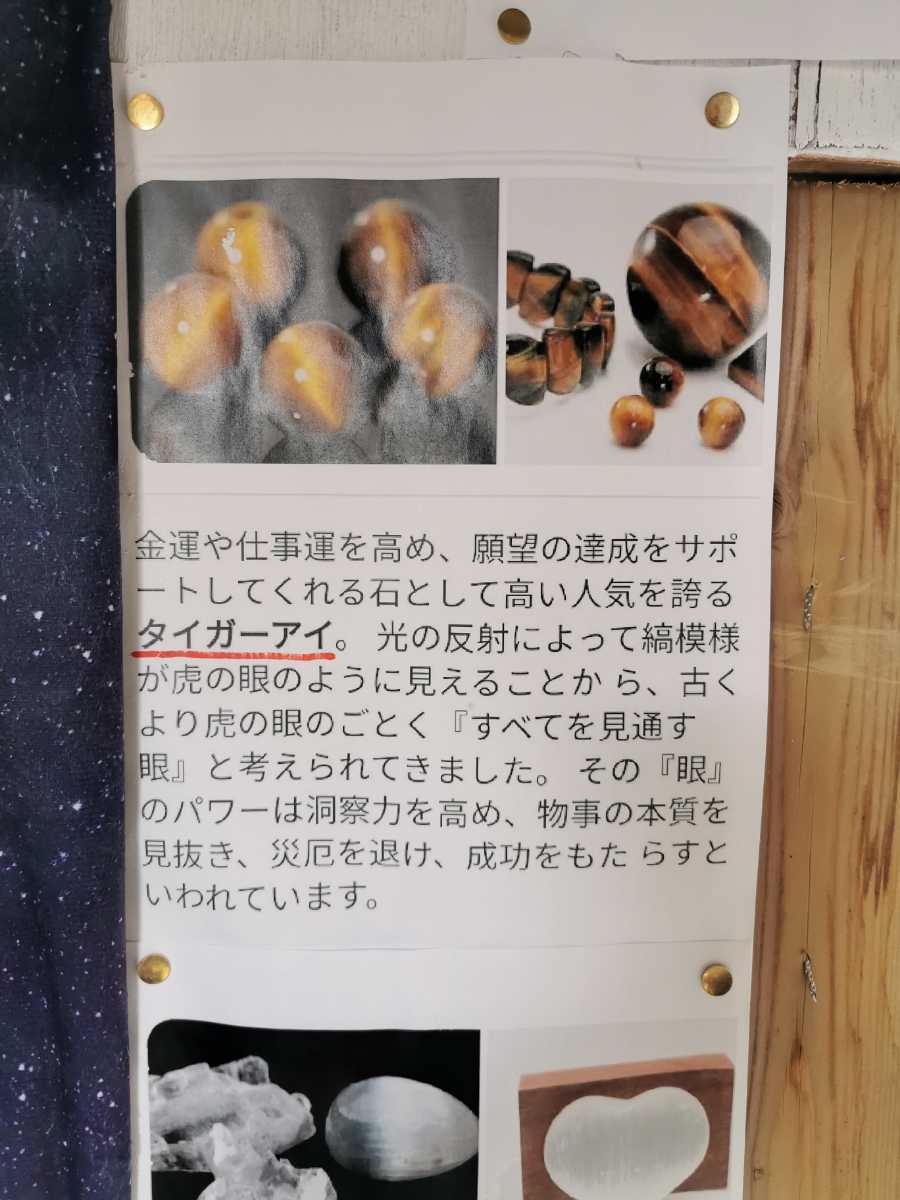 金運や仕事運を高め、願望の達成をサポ
ートしてくれる石として高い人気を誇る
タイガーアイ。 光の反射によって縞模様
が虎の眼のように見えることか ら、古く
より虎の眼のごとく『すべてを見通す
眼』と考えられてきました。 その『眼』
のパワーは洞察力を高め、物事の本質を
見抜き、災厄を退け、成功をもた らすと
いわれています。